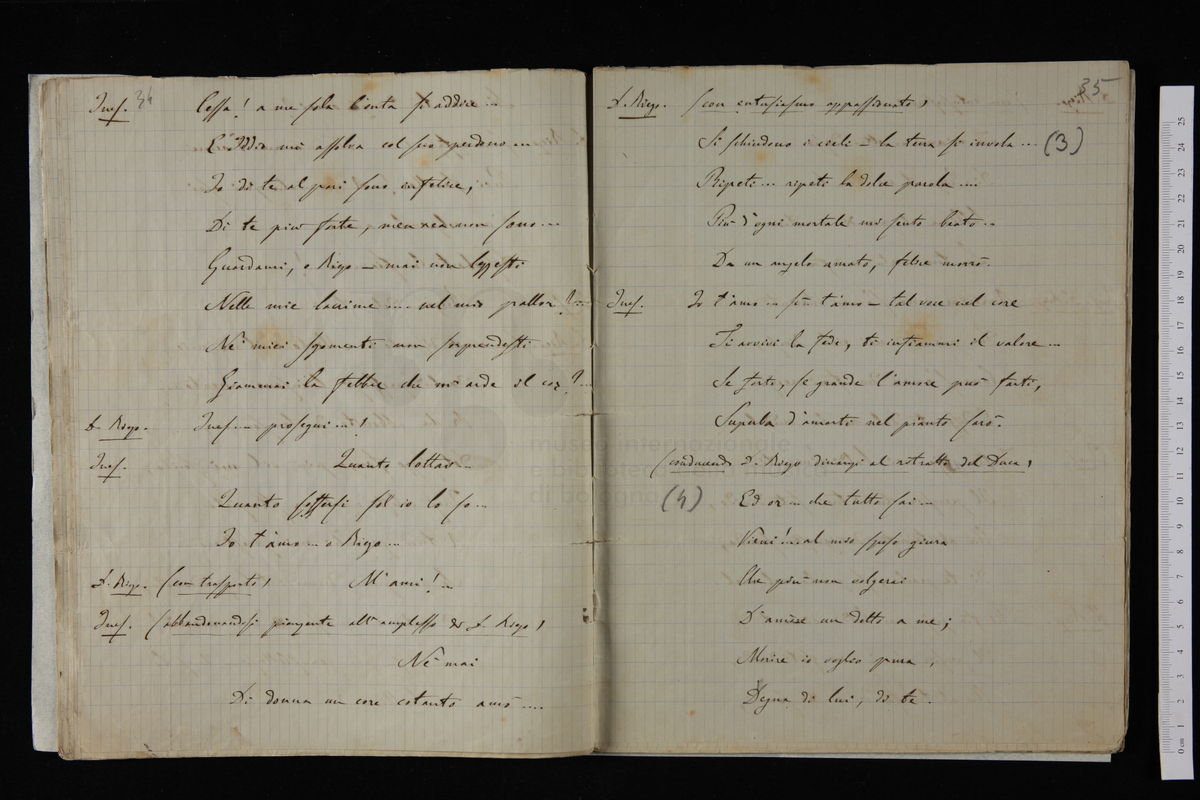 34
Ines. Cessa! a me sola l'onta si addice...
E Iddio mi assolva col suo perdono...
Io di te al pari sono infelice,
Di te più forte, men rea non sono...
Guardami, o Rigo – mai non leggesti
Nelle mie lacrime... nel mio pallor?...
Ne' miei sgomenti non sorprendesti
Giammai la febbre che m'arde il cor?...
D. Rigo. Ines... prosegui...!
Ines. Quanto lottai...
Quanto soffersi sol io lo so...
Io t'amo... o Rigo...
D. Rigo. (con trasporto) M'ami!...
Ines. (abbandonandosi piangente all'amplesso di D. Rigo)
Nè mai
Di donna un core cotanto amò....
35
D. Rigo. (con entusiasmo appassionato)
Si schiudono i cieli – la terra s'invola... (3)
Ripeti... ripeti la dolce parola....
Più d'ogni mortale mi sento beato...
Da un angelo amato, felice morrò.
Ines. Io t'amo... sì t'amo – tal voce nel core
Ti avvivi la fede, ti infiammi il valore...
Se forte, se grande l'amore può farti,
Superba d'amarti nel pianto sarò.
(conducendo D. Rigo dinanzi al ritratto del Duca)
(4) Ed or... che tutto sai...
Vieni!... al mio sposo giura
Che più non volgerai
D'amore un detto a me;
Morire io voglio pura,
Degna di lui, di te.
museo internazionale
biblioteca
di bologna
0 cm 1 2 3 4 5 6 7 8 9 10 11 12 13 14 15 16 17 18 19 20 21 22 23 24 25